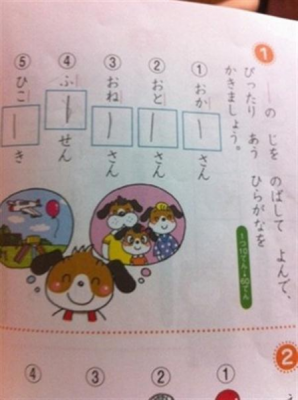 1
の じを のばして よんで、
ぴったり あう ひらがなを
かきましょう。
1つ10てん【60てん】
① おかーさん
② おとーさん
③ おねーさん
④ ふーせん
⑤ ひこーき
2
①
②
③
④